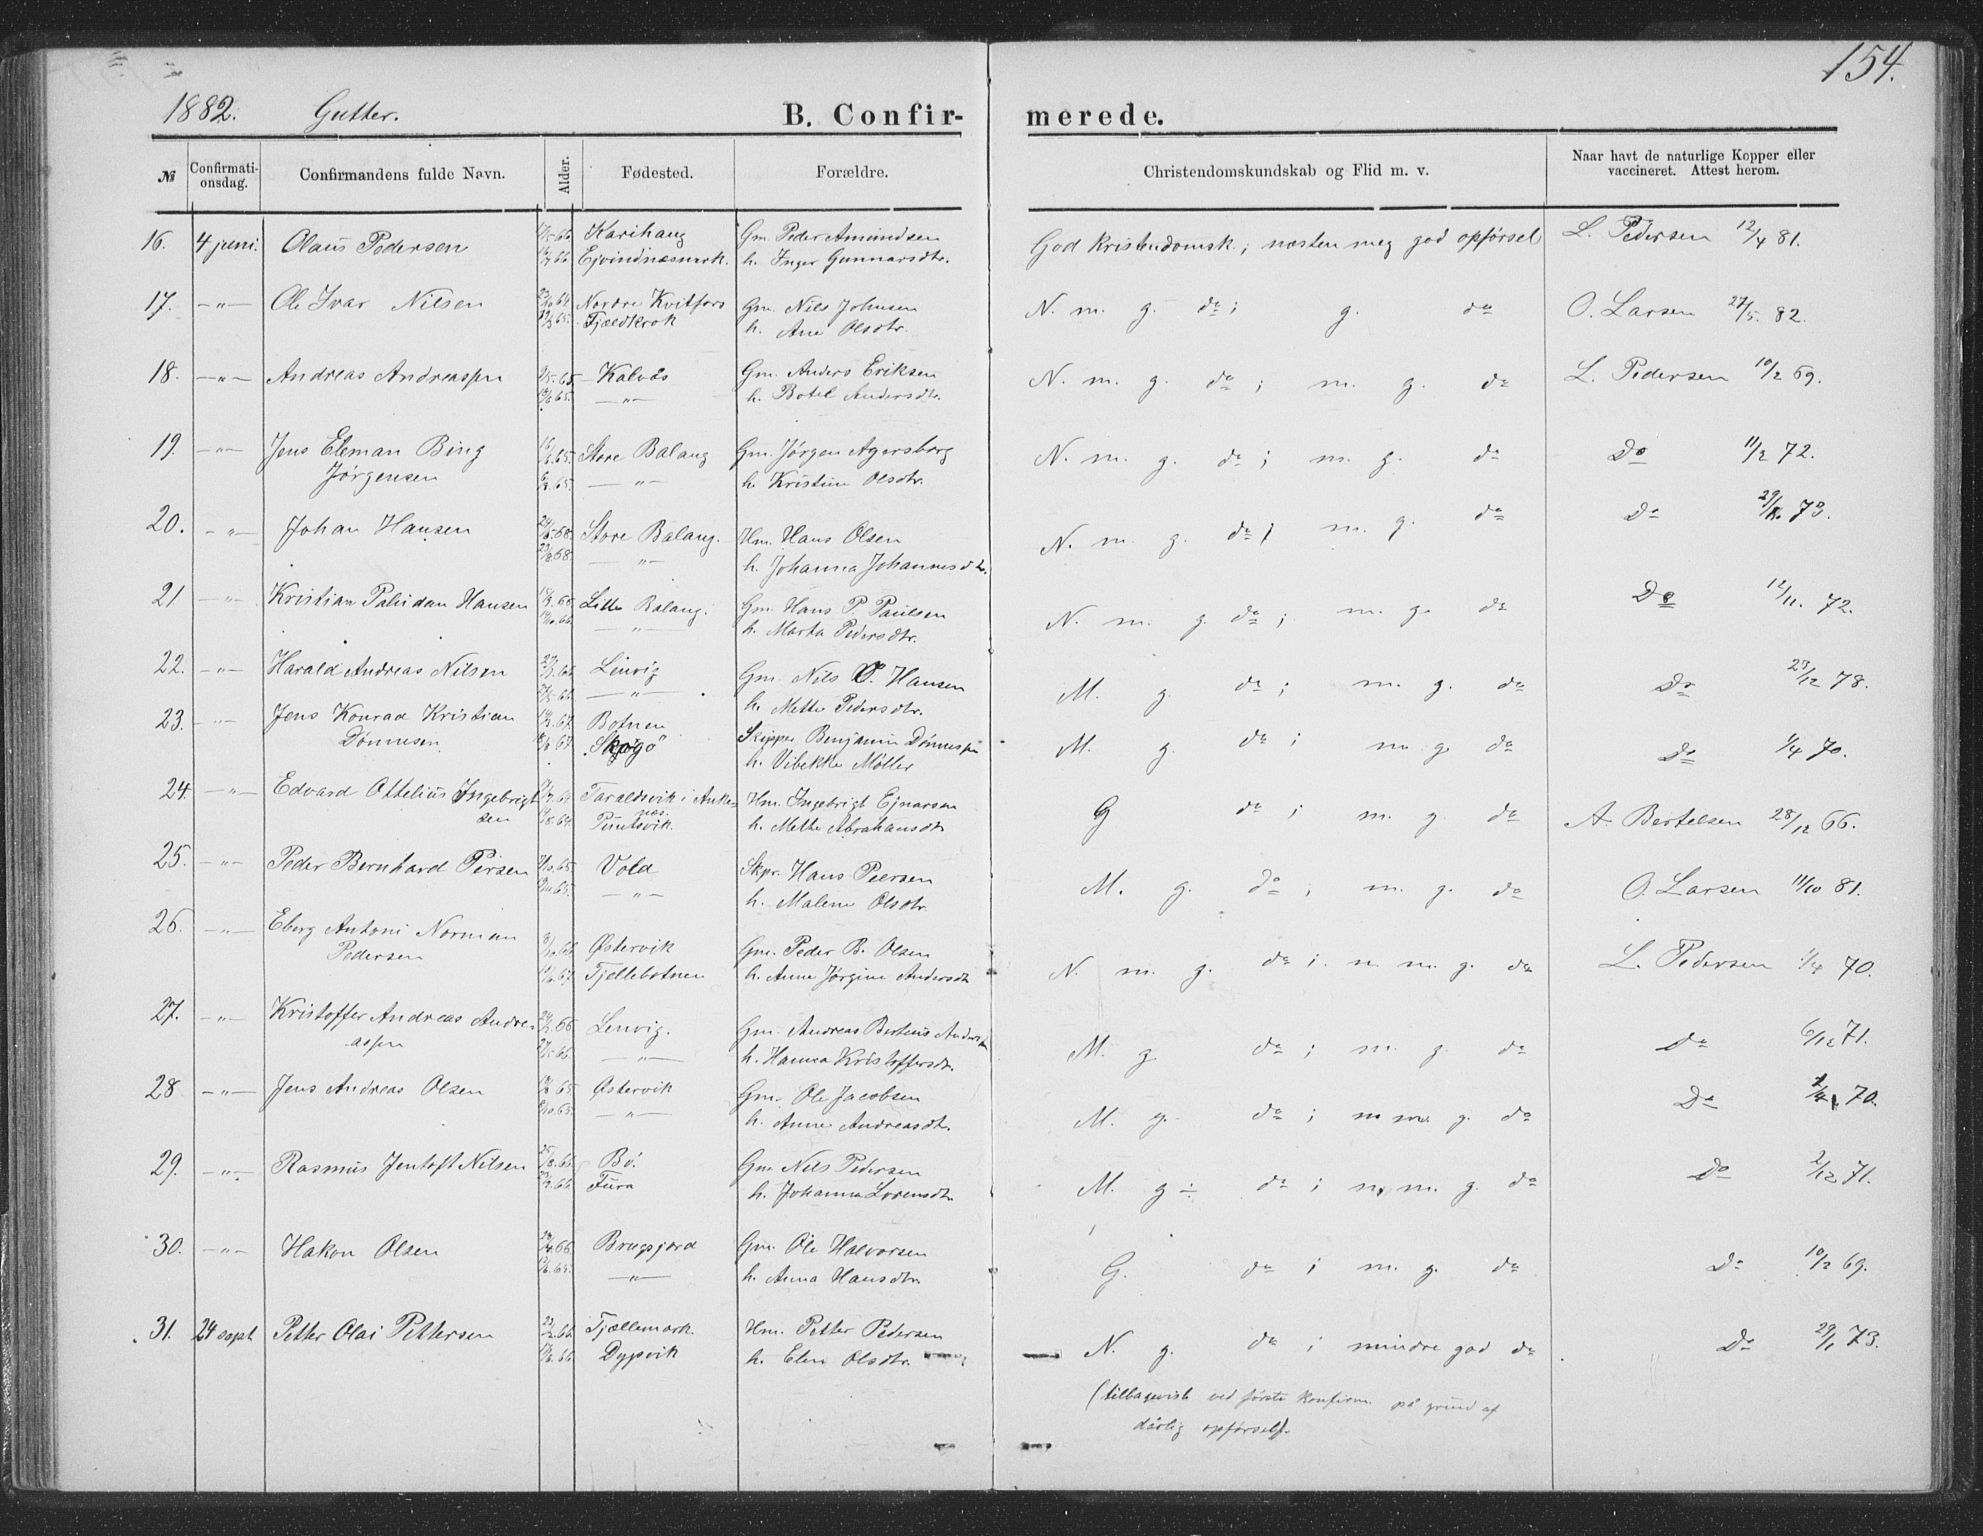 154.
1882. Gutter. B. Confirmerede.
№ Confirmationsdag. Confirmandens fulde Navn. Alder. Fødested. Forældre. Christendomskundskab og Flid m. v. Naar havt de naturlige Kopper eller vaccineret. Attest herom.
16. 4 juni. Olaus Pedersen Karihaug Gm. Peder Amundsen God kristendomsk; næsten meg god opførsel L. Pedersen 12/4 81.
Ejvindnæsmark. h. Inger Gunnarsdtr.
17. —〃— Ole Ivar Nilsen Nordre Kvitfors Gm. Nils Johnsen N. m. g. do; g. do O. Larsen 27/5. 82.
Fjældkrok h. Ane Olsdtr.
18. —〃— Andreas Andreassen Kalvås Gm. Anders Eriksen N. m. g. do; m. g. do L. Pedersen 10/2 69.
—〃— h. Botel Andersdtr.
19. —〃— Jens Eleman Bing Store Balang Gm. Jørgen Agersborg N. m. g. do; m. g. do Do 11/2 72.
Jørgensen —〃— h. Kristine Olsdtr.
20. —〃— Johan Hansen Store Balang. Hm. Hans Olsen N. m. g. do; m. g. do Do 73.
—〃— h. Johanna Johannesdtr.
21 —〃— Kristian Paludan Hansen Lille Balang. Gm. Hans P. Paulsen N. m. g. do; m. g. do Do 12/11. 72.
—〃— h. Marta Pedersdtr.
22. —〃— Harald Andreas Nilsen Lenvig Gm. Nils O. Hansen M. g. do; m. g. do Do 23/12 78.
—〃— h. Mette Pedersdtr.
23. —〃— Jens Konrad Kristian Botnen Skipper Benjamin Dønnesen M. g. do; m. g. do Do 1/4 70.
Dønnesen. Skogø h. Vibekke Møller
24. —〃— Edvard Ottelius Ingebrigt Taraldsvik i Ankenæs. Hm. Ingebrigt Ejnarsen G do; m. g. do A. Bertelsen 28/12 66.
sen h. Methe Abrahamsdtr
25. —〃— Peder Bernhard Persen Vold Skpr. Hans Peersen M. g. do; m. g. do O. Larsen 11/10 81.
—〃— h. Malene Olsdtr.
26. —〃— Eberg Antoni Norman
Pedersen Østervik Gm. Peder B. Olsen N. m. g. do; n. m. g. do L. Pedersen 1/4 70.
Tjellebotnen h. Anne Jørgine Andersdtr
27. —〃— Kristoffer Andreas Andre- Lenvig. Gm. Andreas Berteus Anders M. g. do; m. g. do Do 6/12 71.
assen —〃— h. Hanna Kristoffersdtr.
28 —〃— Jens Andreas Olsen Østervik Gm. Ole Jacobsen M. g. do; m. g. do Do 70.
—〃— h. Anne Andreasdtr.
29. —〃— Rasmus Jentoft Nilsen Bø. Gm. Nils Pedersen M. g ÷ do; n. m. g. do Do 2/12 71.
Fura h. Johanna Lorensdtr
30. —〃— Hakon Olsen Brugsjord Gm. Ole Halvorsen G. do; m. g. do Do 10/2 69.
—〃— h. Anna Hansdtr.
31. 24 sept. Petter Olai Pettersen Tjællemark. Hm. Petter Pedersen N. g. do; mindre god do Do 29/1 73.
Dypvik h. Elen Olsdtr.
(tilbagevist ved første konfirm. på grund af
dårlig opførsel).